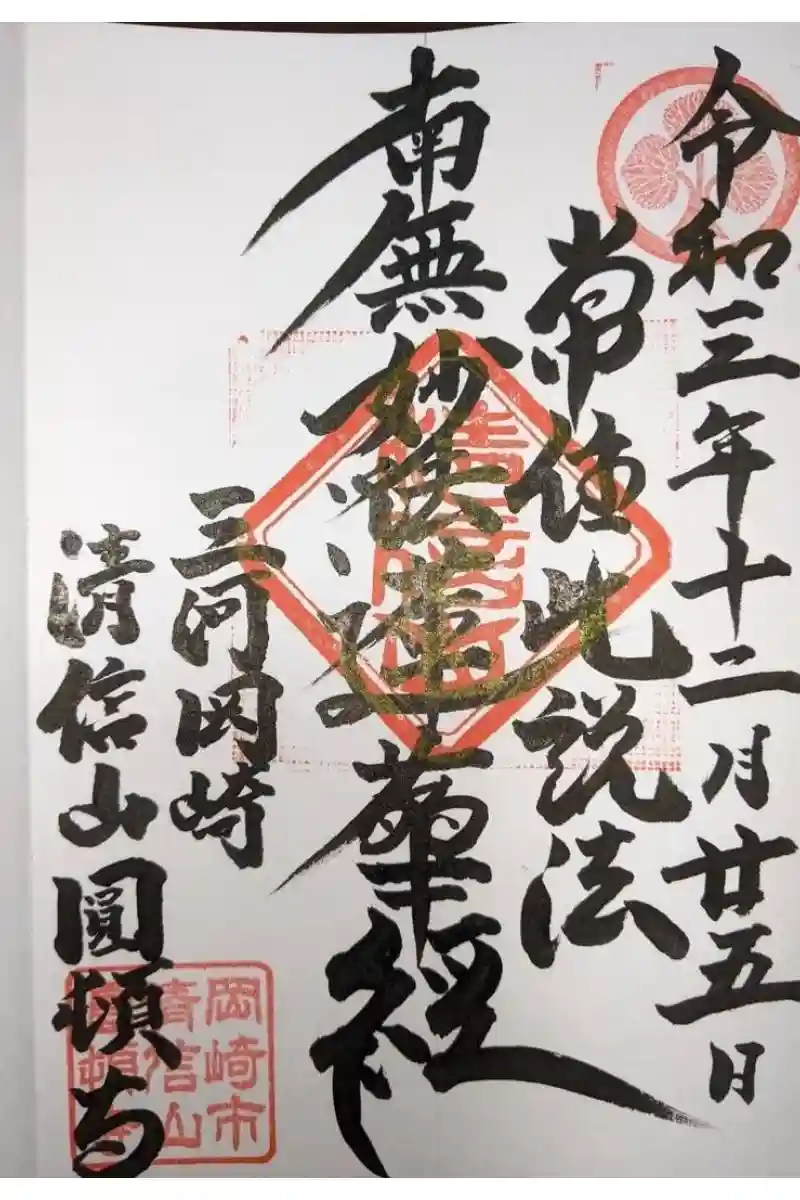 令和三年十二月廿五日
常住此説法
南無妙法蓮華経
三河岡崎
清信山圓頓寺
岡崎市
清信山
圓頓寺